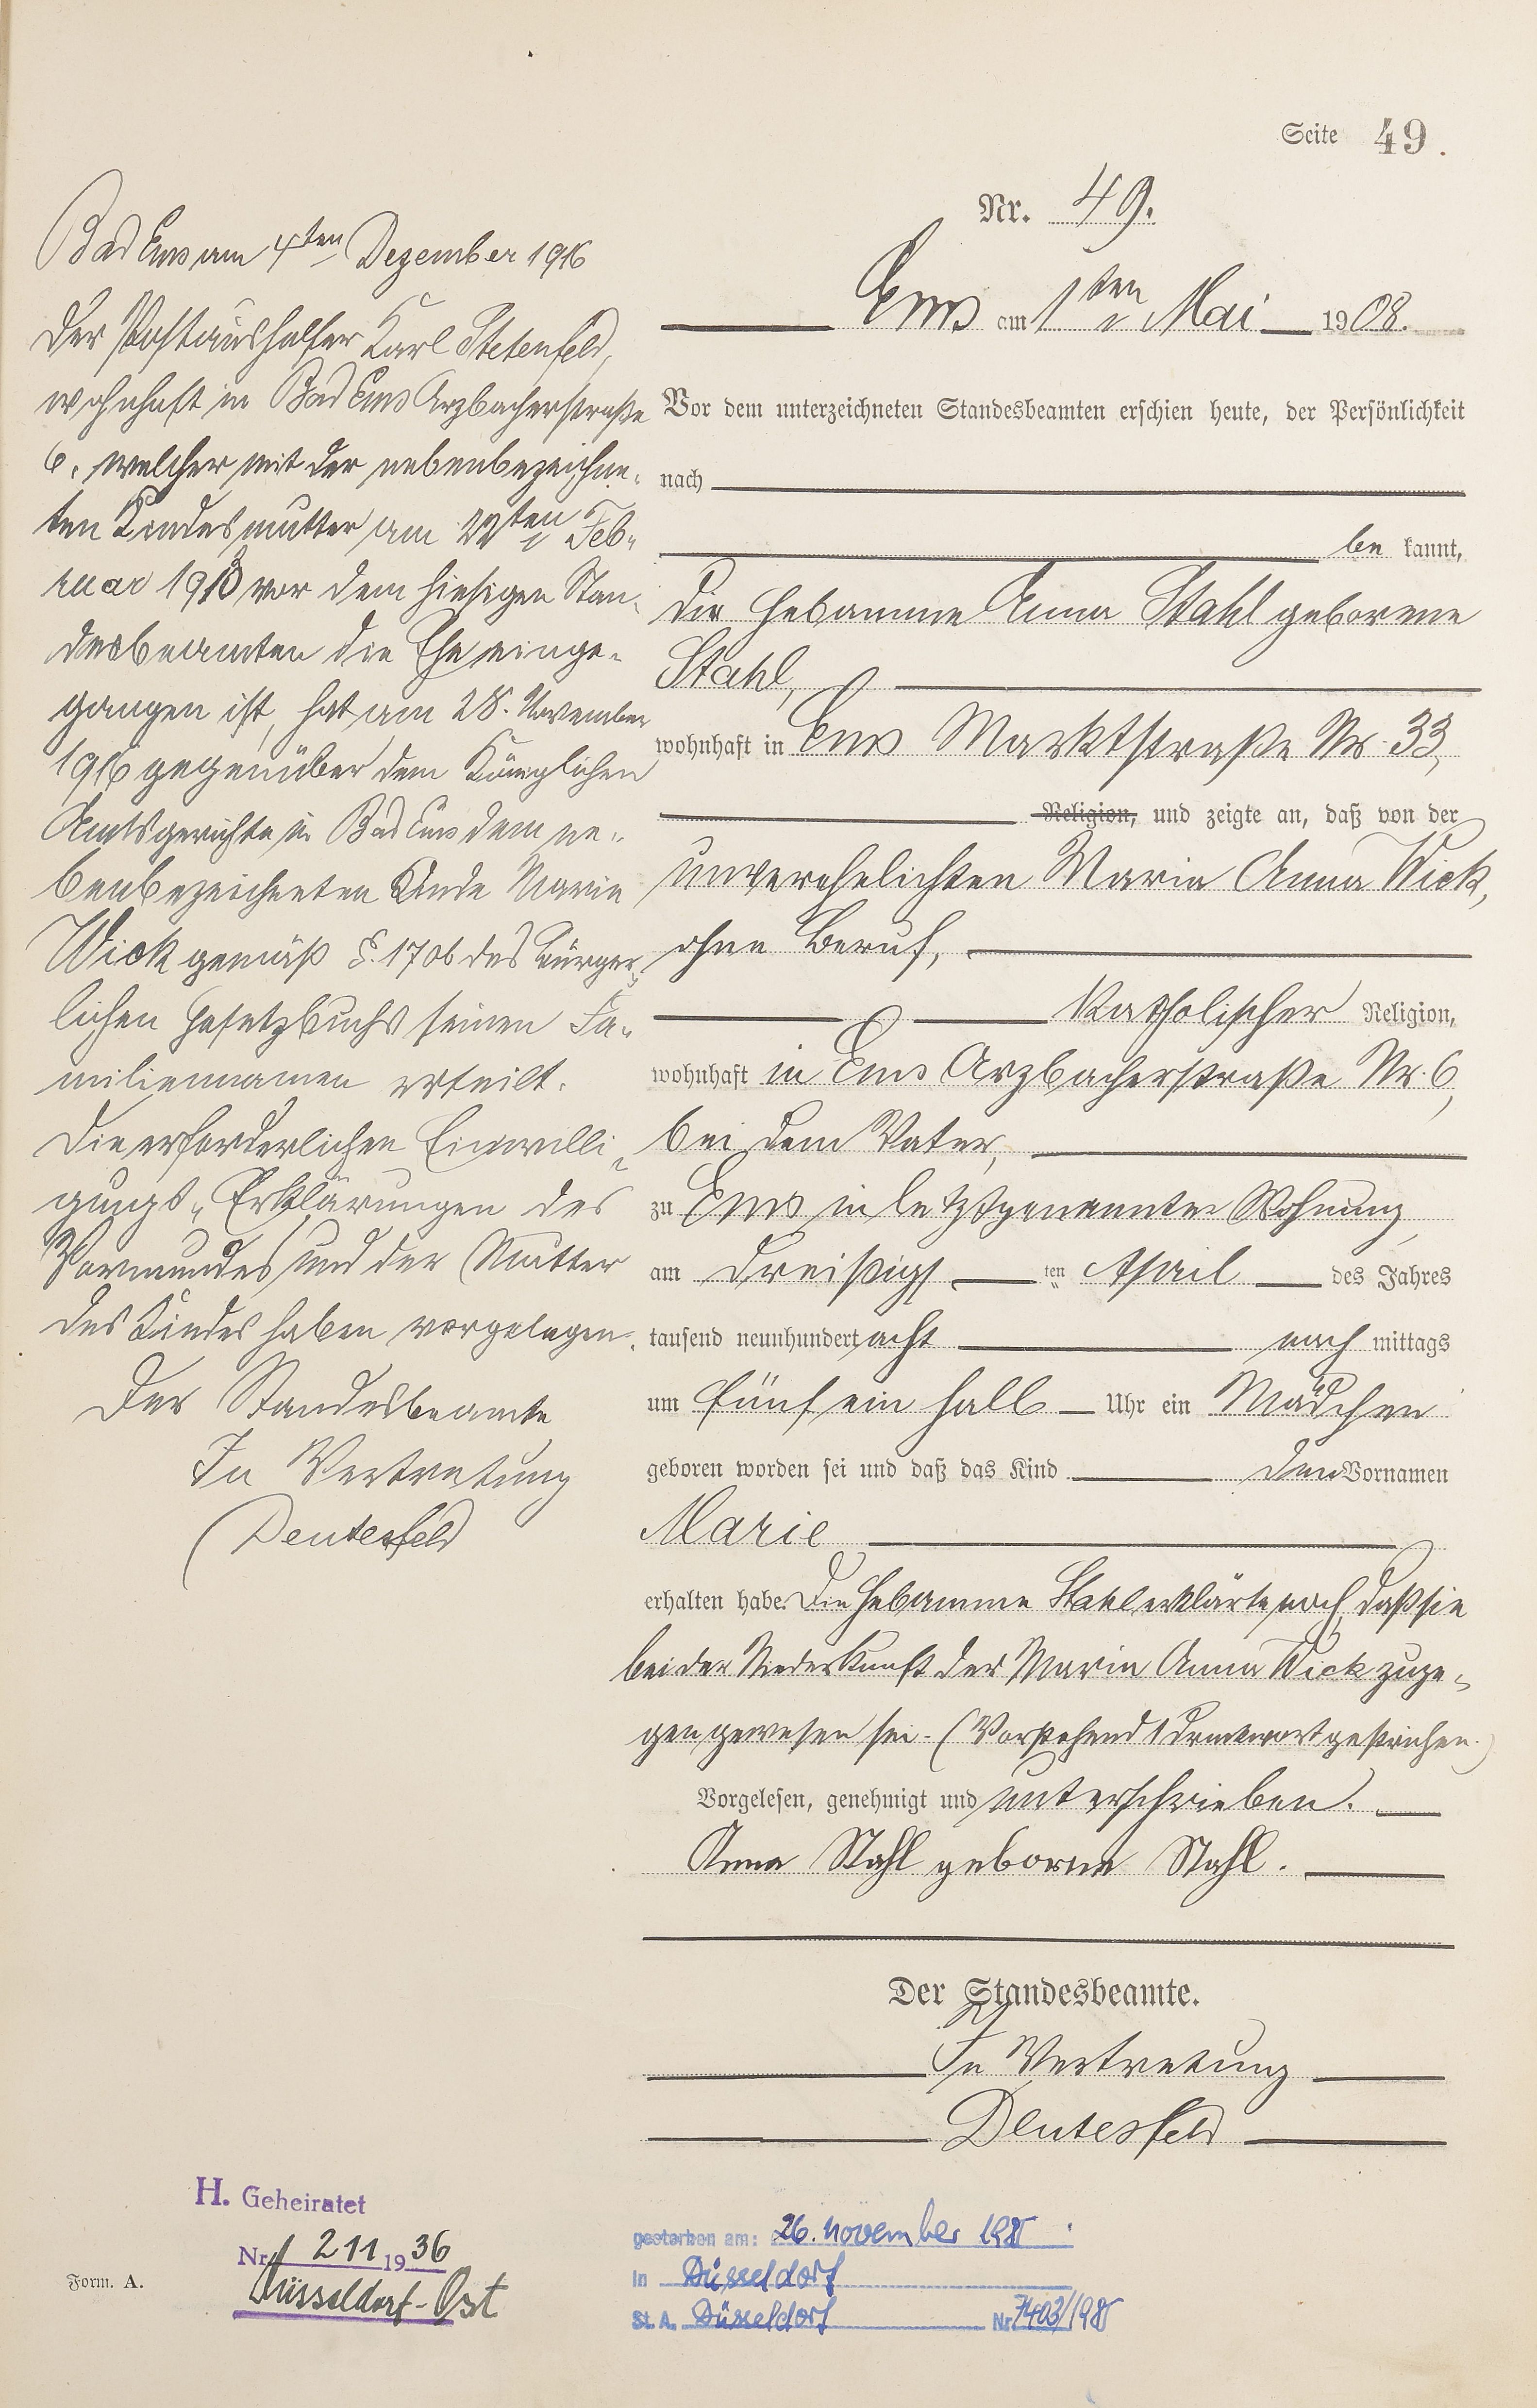 Seite 49.
Nr. 49.
Ems am 1ten Mai 1908.
Vor dem unterzeichneten Standesbeamten erschien heute, der Persönlichkeit
nach
be kannt,
die Hebamme Anna Stahl geborene
Stahl,
wohnhaft in Ems Marktstraße Nr. 33,
Religion, und zeigte an, daß von der
unverehelichten Maria Anna Wick,
ohne Beruf,
katholischer Religion,
wohnhaft in Ems Arzbacherstraße Nr. 6,
bei dem Vater,
zu Ems in letztgenannter Wohnung,
am dreißigsten April des Jahres
tausend neunhundert acht nach mittags
um fünf ein halb Uhr ein Mädchen
geboren worden sei und daß das Kind den Vornamen
Marie
erhalten habe. Die Hebamme Stahl erklärte noch, daß sie
bei der Niederkunft der Maria Anna Wick zuge-
gen gewesen sei. (Vorstehend 1 Druckwort gestrichen.)
Vorgelesen, genehmigt und unterschrieben.
Anna Stahl geborne Stahl.
Der Standesbeamte.
In Vertretung
Deutesfeld
Bad Ems am 4ten Dezember 1916
Der Postaushelfer Karl Stetenfeld,
wohnhaft in Bad Ems Arzbacherstraße
6, welcher mit der nebenbezeichne-
ten Kindesmutter am 22ten Feb-
ruar 1913 vor dem hiesigen Stan-
desbeamten die Ehe einge-
gangen ist, hat am 28. November
1916 gegenüber dem Königlichen
Amtsgerichte in Bad Ems dem ne-
benbezeichneten Kinde Marie
Wick gemäß §. 1706 des Bürger-
lichen Gesetzbuchs seinen Fa-
miliennamen erteilt.
Die erforderlichen Einwilli-
gungs-Erklärungen des
Vormundes und der Mutter
des Kindes haben vorgelegen.
Der Standesbeamte
In Vertretung
Deutesfeld
H. Geheiratet
Nr. 211 1936
Düsseldorf-Ost
gestorben am: 26. November 1985
in Düsseldorf
St. A. Düsseldorf Nr. 7403/1985
Form. A.